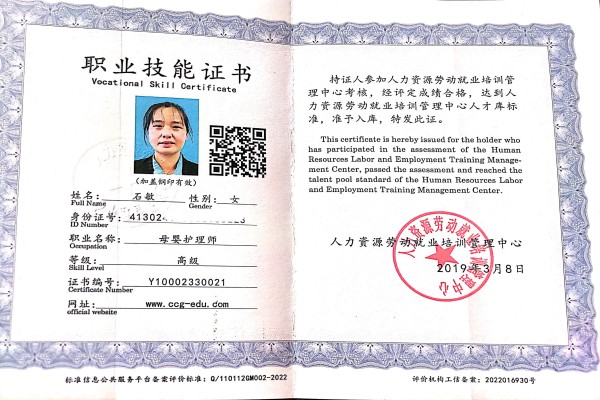 职业技能证书
Vocational Skill Certificate
(加盖钢印有效)
姓名: 石敏 性别: 女
Full Name Gender
身份证号: 41302
ID Number
职业名称: 母婴护理师
Occupation
等级: 高级
Skill Level
证书编号: Y10002330021
Certificate Number
网址: www.ccg-edu.com
official website
标准信息公共服务平台备案评价标准: Q/110112GM002-2022
持证人参加人力资源劳动就业培训管
理中心考核，经评定成绩合格，达到人
力资源劳动就业培训管理中心人才库标
准，准予入库，特发此证。
This certificate is hereby issued for the holder who
has participated in the assessment of the Human
Resources Labor and Employment Training Manage-
ment Center, passed the assessment and reached the
talent pool standard of the Human Resources Labor
and Employment Training Management Center.
人力资源劳动就业培训管理中心
人力资源劳动就业培训管理中心
2019年3月8日
评价机构工信备案: 2022016930号